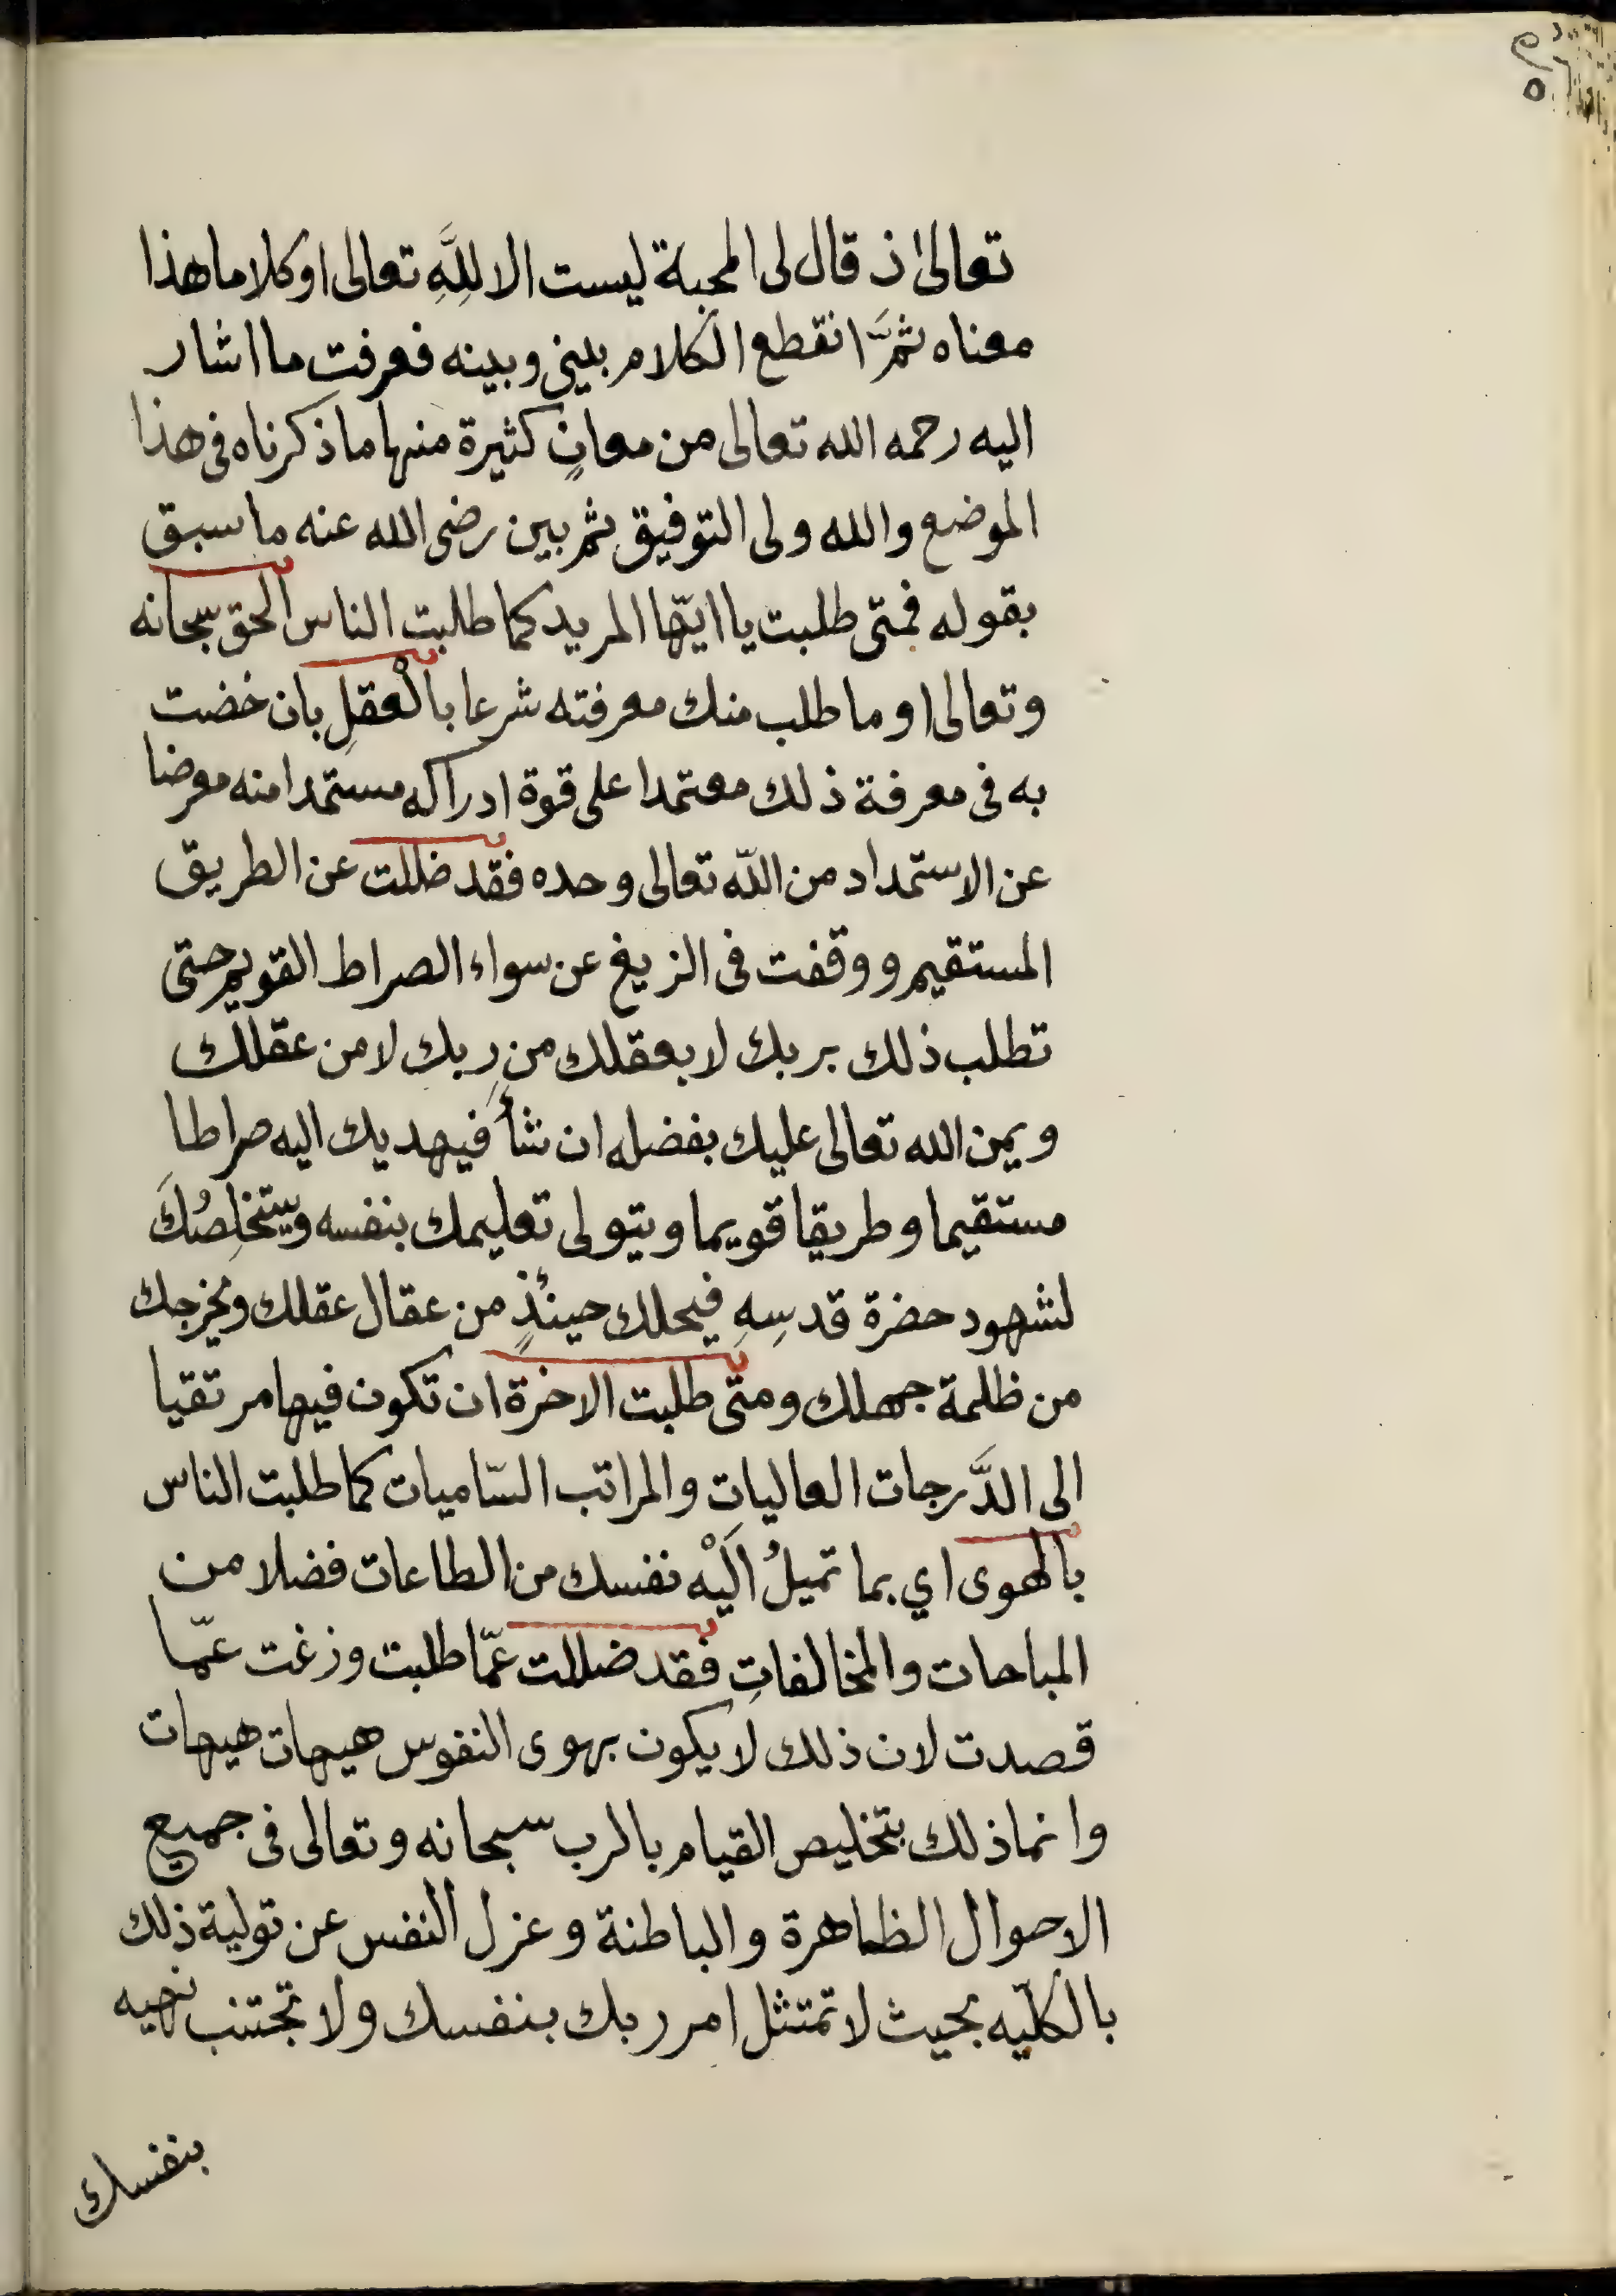 تعالى اذ قال لى المحبة ليست الا للَّهِ تعالى او كلاما هذا
معناه ثمَّ انقطع الكلام بينى وبينه فعرفت ما اشار
اليه رحمه الله تعالى من معانٍ كثيرة منها ما ذكرناه فى هذا
الموضع والله ولى التوفيق ثم بين رضى الله عنه ما سبق
بقوله فمتى طلبت يا ايّها المريد كما طلبت الناس الحق سبحانه
وتعالى او ما طلب منك معرفته شرعا بالْعقلِ بان خضت
به فى معرفة ذلك معتمدا على قوة ادراكه مستمدا منه معرضا
عن الاستمداد من اللّه تعالى وحده فقد ضللت عن الطريق
المستقيم ووقفت فى الزيغ عن سواء الصراط القويم حتى
تطلب ذلك بربك لا بعقلك من ربك لا من عقلك
ويمن الله تعالى عليك بفضله ان شأ فيهديك اليه صراطا
مستقيما وطريقا قويما ويتولى تعليمك بنفسه ويستخلِصُكَ
لشهود حضرة قدسِهِ فيحلك حينئذٍ من عقال عقلك ويخرجك
من ظلمة جهلك ومتى طلبت الاخرة ان تكون فيها مرتقيا
الى الدَّرجات العاليات والمراتب السّاميات كما طلبت الناس
بالهوى اي بما تميلُ اَليْه نفسك من الطاعات فضلا من
المباحات والمخالفاتِ فقد ضللت عمّا طلبت وزغت عمّا
قصدت لان ذلك لا يكون بهوى النفوس هيهات هيهات
وانما ذلك بتخليص القيام بالرب سبحانه وتعالى فى جميع
الاحوال الظاهرة والباطنة وعزل النفس عن تولية ذلك
بالكلّيه بحيث لا تمتثل امر ربك بنفسك ولا تجتنب نهيه
بنفسك